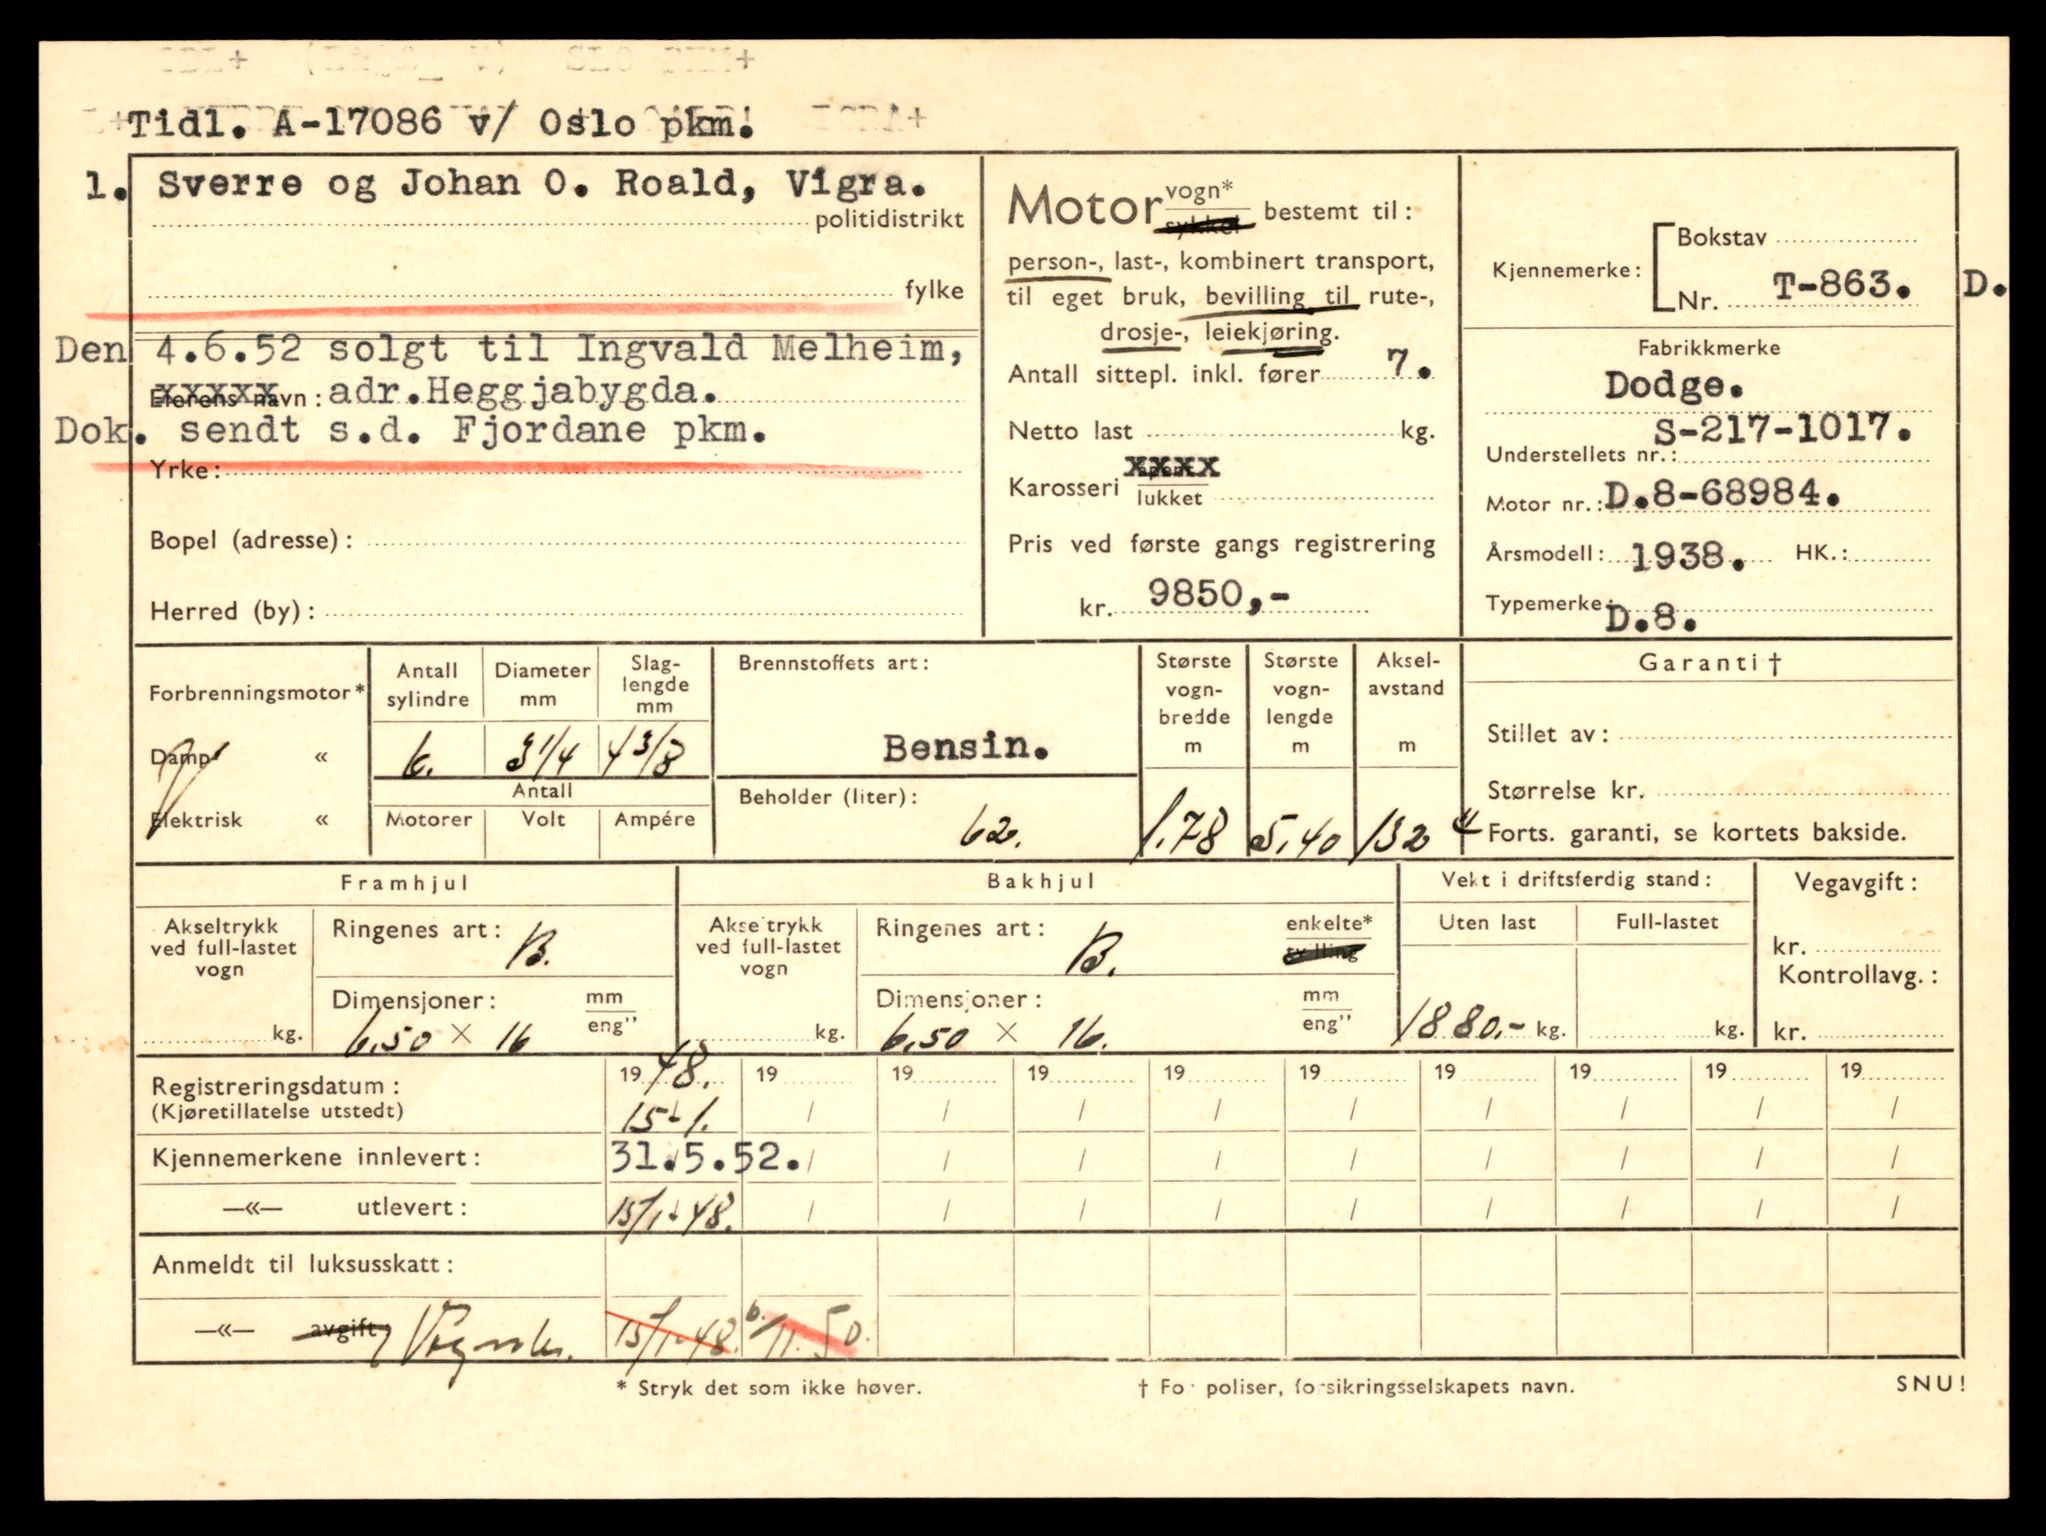 Tidl. A-17086 v/ Oslo pkm.
1. Sverre og Johan O. Roald, Vigra.
politidistrikt
fylke
Den 4.6.52 solgt til Ingvald Melheim,
xxxxx navn: adr.Heggjabygda.
Dok. sendt s.d. Fjordane pkm.
Yrke:
Bopel (adresse):
Herred (by):
Motor vogn* / sykkel bestemt til:
person-, last-, kombinert transport,
til eget bruk, bevilling til rute-,
drosje-, leiekjøring.
Antall sittepl. inkl. fører 7.
Netto last kg.
Karosseri xxxx / lukket
Pris ved første gangs registrering
kr. 9850,-
Kjennemerke:
Bokstav
Nr. T-863. D.
Fabrikkmerke
Dodge.
S-217-1017.
Understellets nr.:
Motor nr.: D.8-68984.
Årsmodell: 1938. HK.:
Typemerke: D.8.
Forbrenningsmotor*
Damp «
Elektrisk «
Antall sylindre
6.
Diameter mm
3 1/4
Slag-lengde mm
4 3/8
Antall
Motorer Volt Ampére
Brennstoffets art:
Bensin.
Beholder (liter):
62.
Største vogn-bredde m
1,78
Største vogn-lengde m
5,40
Aksel-avstand m
132"
Garanti †
Stillet av:
Størrelse kr.
Forts. garanti, se kortets bakside.
Framhjul
Akseltrykk ved full-lastet vogn
kg.
Ringenes art: B.
Dimensjoner: mm / eng"
6,50 × 16
Bakhjul
Akseltrykk ved full-lastet vogn
kg.
Ringenes art: B. enkelte* / tvilling
Dimensjoner: mm / eng"
6,50 × 16.
Vekt i driftsferdig stand:
Uten last Full-lastet
1880.- kg. kg.
Vegavgift:
kr.
Kontrollavg.:
kr.
Registreringsdatum: 19 48. 19 19 19 19 19 19 19 19 19
(Kjøretillatelse utstedt) 15-1. / / / / / / / / /
Kjennemerkene innlevert: 31.5.52. / / / / / / / / /
—«— utlevert: 15/1-48. / / / / / / / / /
Anmeldt til luksusskatt:
—«— avgift: 15/1-48. 6./11.50.
* Stryk det som ikke høver.
† For poliser, forsikringsselskapets navn.
SNU!